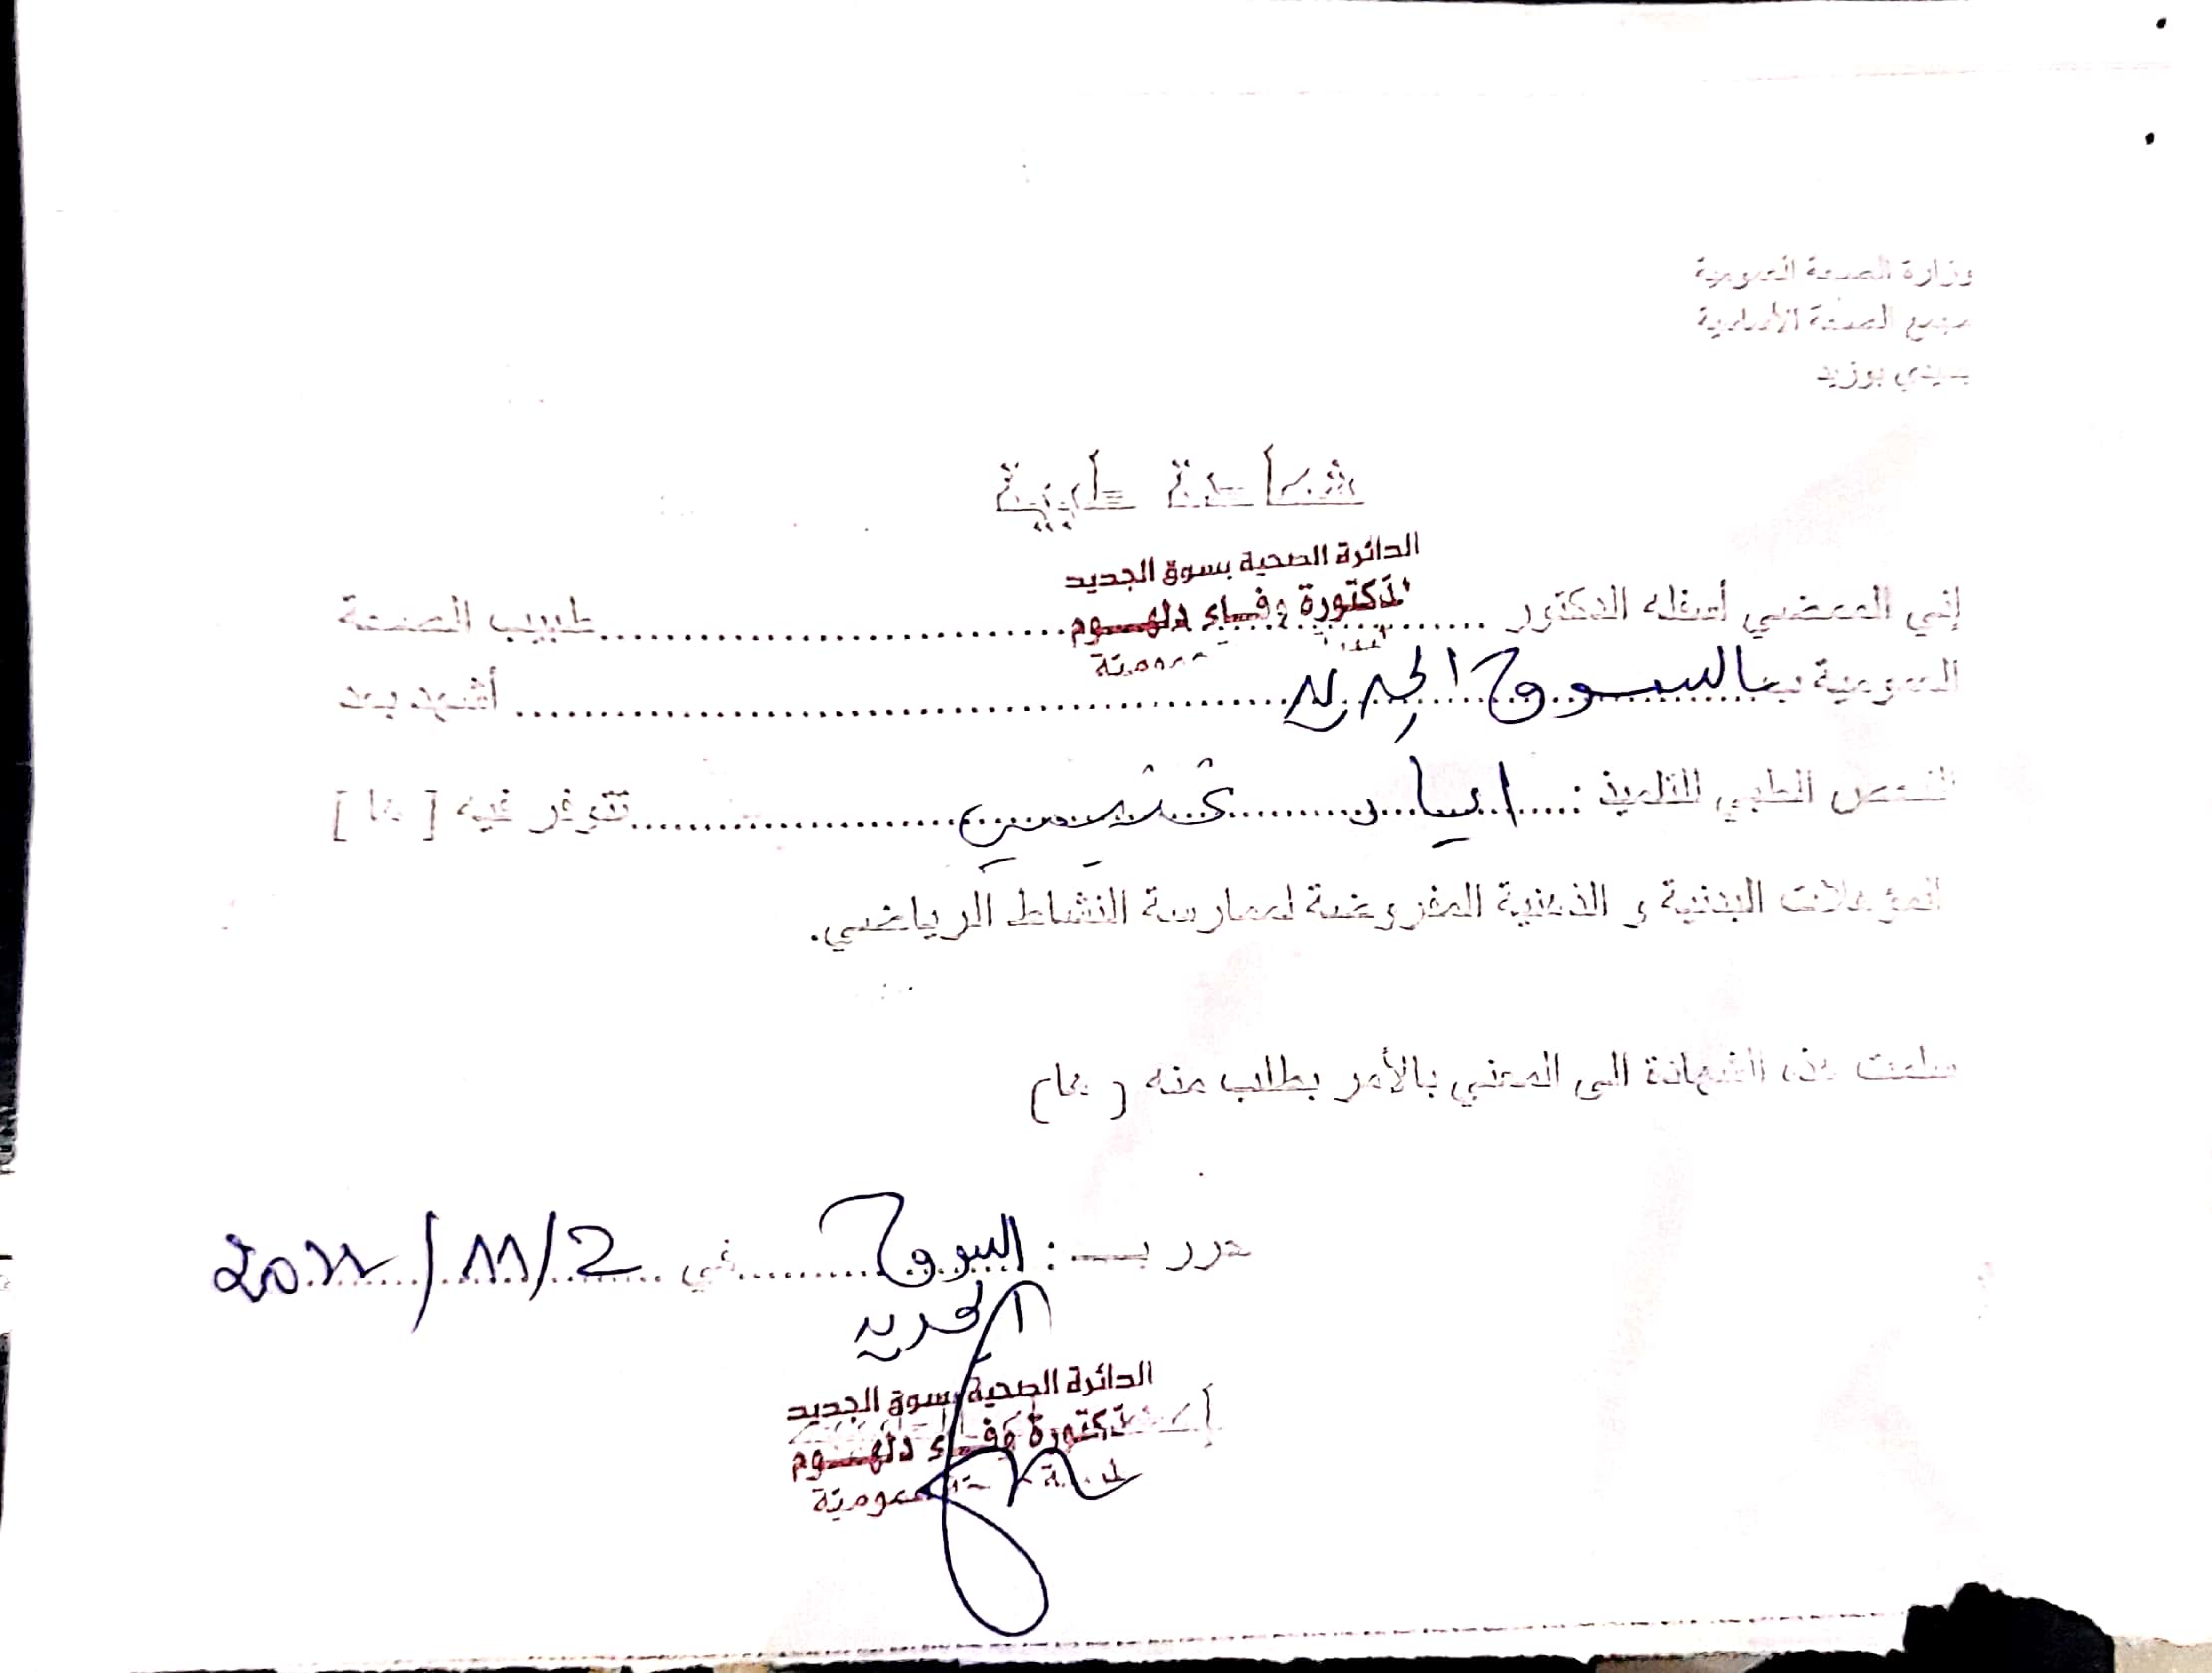 وزارة الصحة العمومية
مجمع الصحة الأساسية
بسيدي بوزيد
شهادة طبية
الدائرة الصحية بسوق الجديد
الدكتورة وفاء دلهوم
إني الممضي أسفله الدكتور ........ طبيب الصحة
العمومية بـ بالسوق الجديد ........ أشهد بعد
الفحص الطبي للتلميذ : اياد ........ تتوفر فيه [ ها ]
المؤهلات البدنية و الذهنية المفروضة لممارسة النشاط الرياضي.
سلمت هذه الشهادة الى المعني بالأمر بطلب منه ( ها )
حرر بـ : السوق ........ في 2/11/2022
الجديد
الدائرة الصحية بسوق الجديد
الدكتورة وفاء دلهوم
العمومية